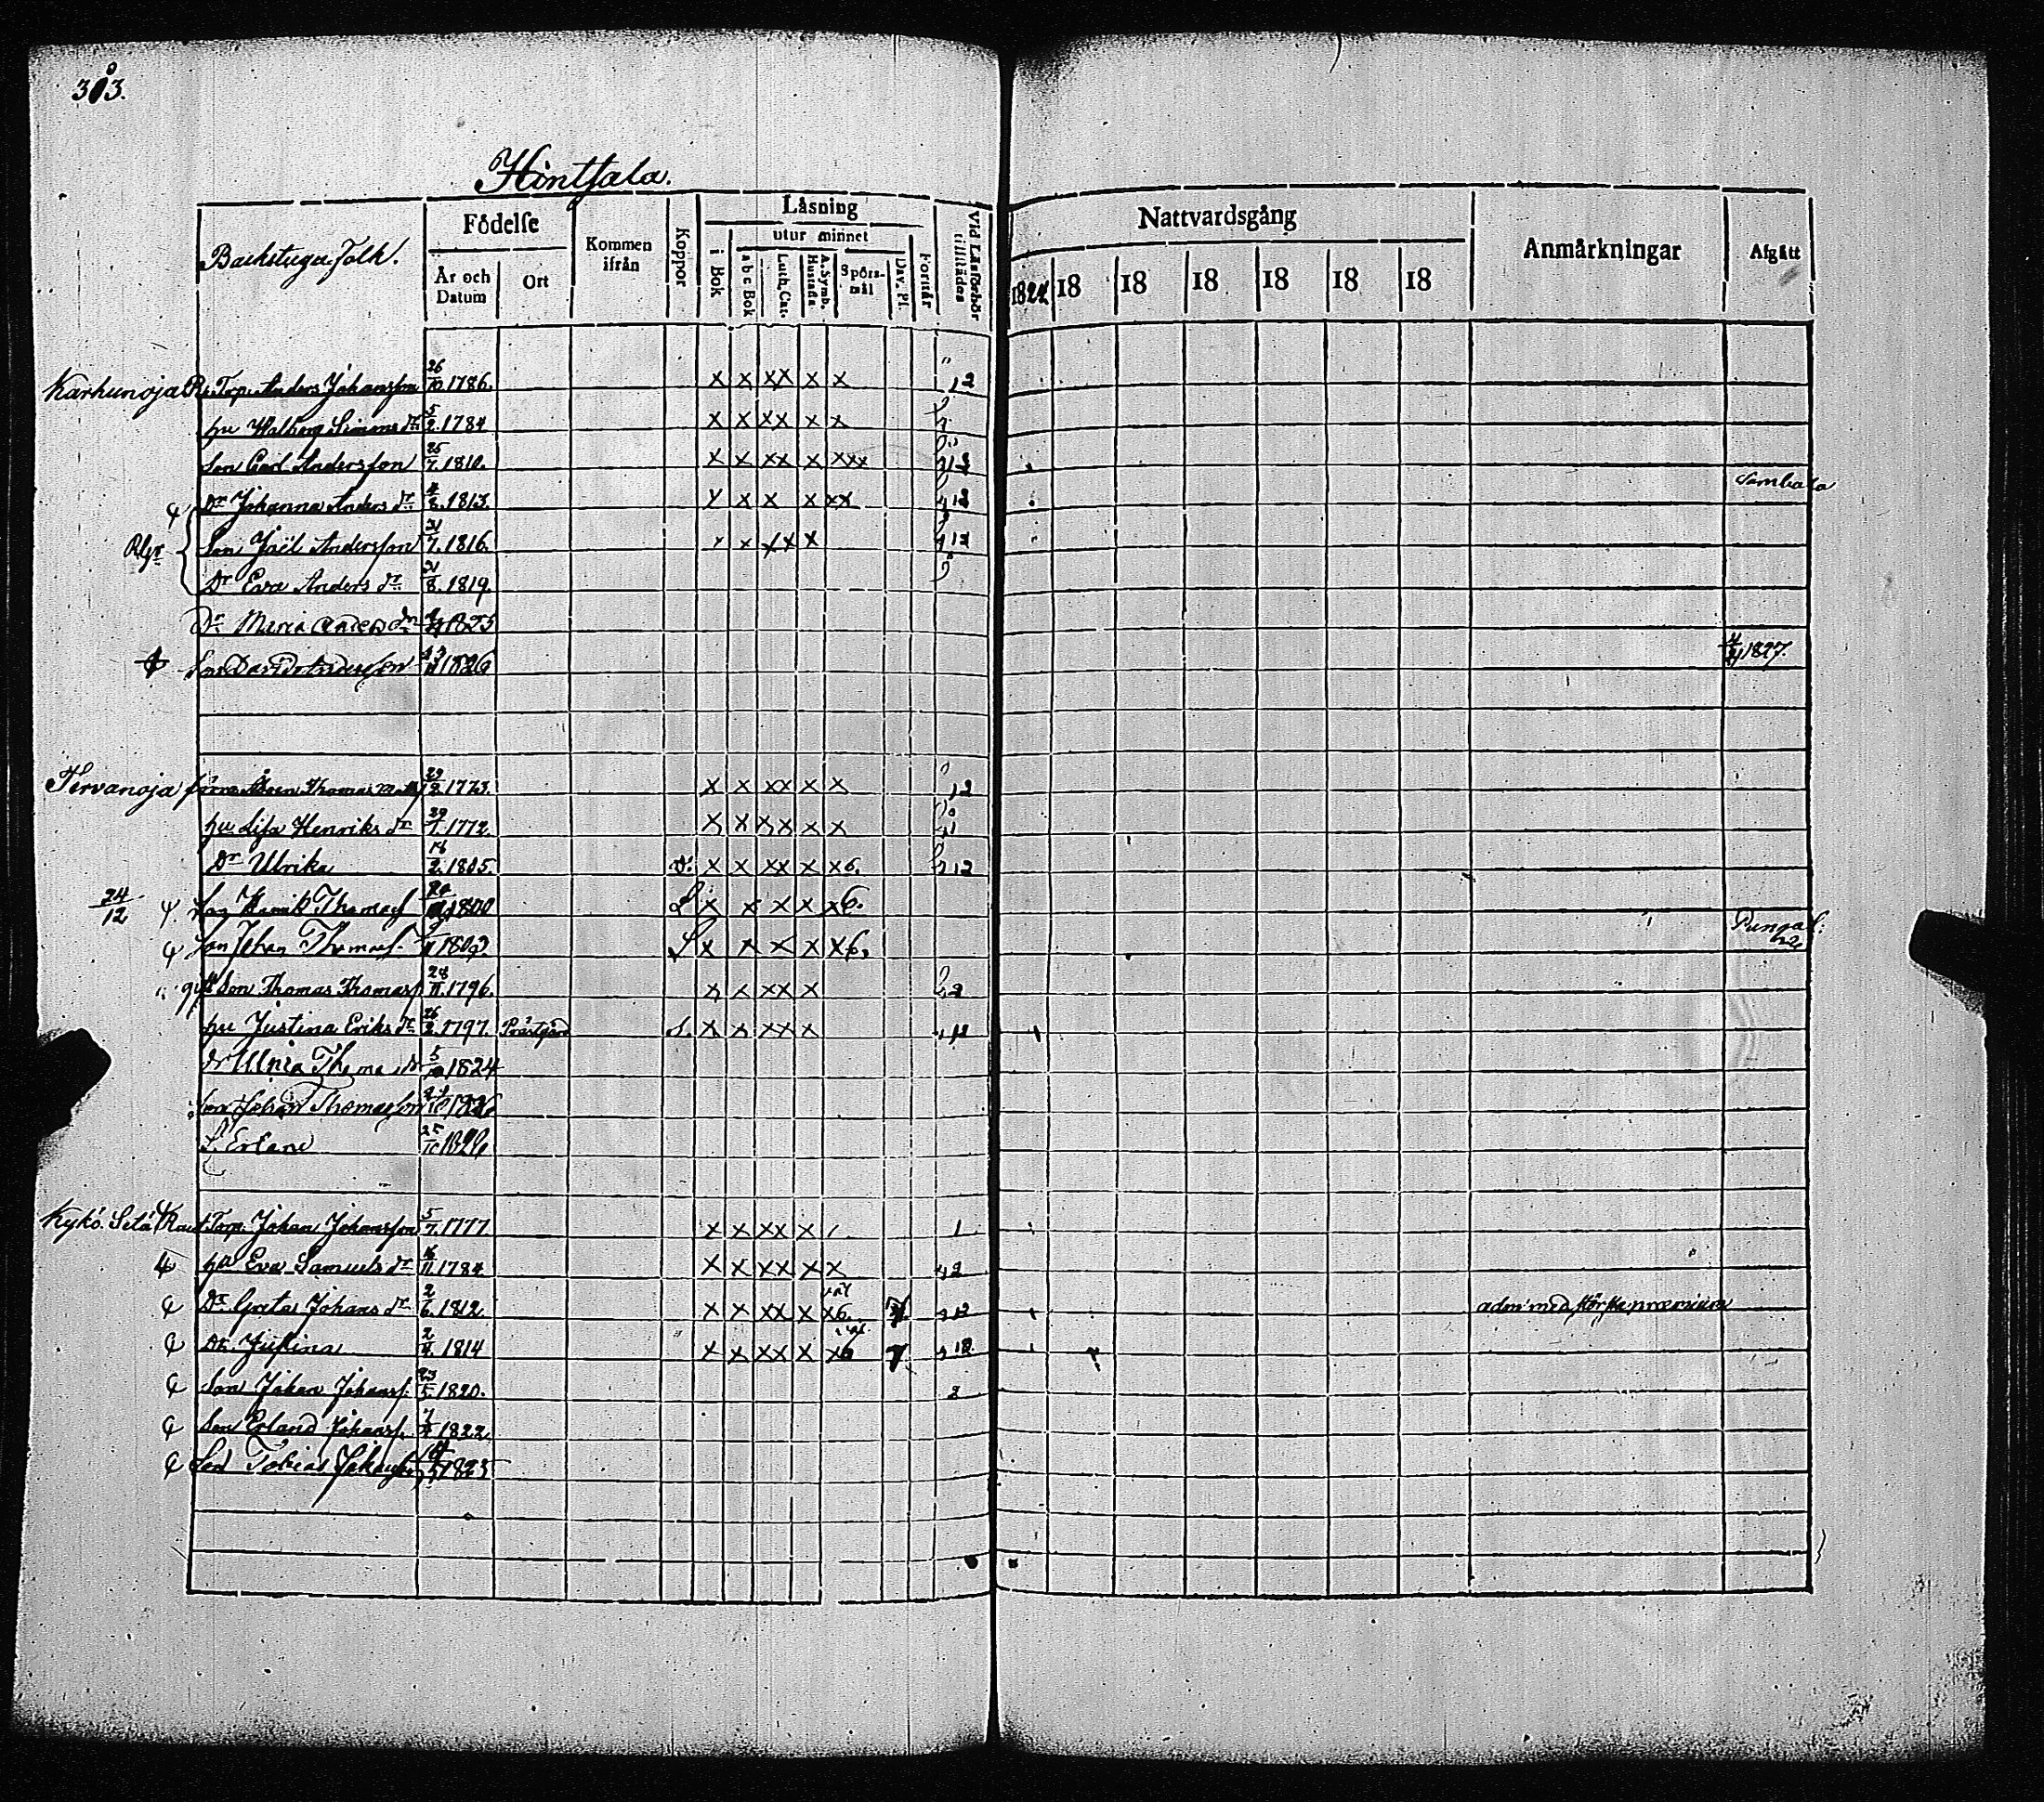 303.
Hintsala.
Backstugu Folk.
Födelse
År och Datum
Ort
Kommen ifrån
Koppor
Låsning
i Bok
utur minnet
a b c Bok
Luth. Cat.
A. Symb. Hustafla.
Spörs-mål
Dav. Pf.
Förstår
Vid Läsförhör tillstädes
Nattvardsgång
1824 18 18 18 18 18 18
Anmårkningar
Afgått
Karhunoja Torp. Anders Johansson 26/10. 1786. x x xx x x 12
hu Walborg Simons dr 5/2. 1784 x x xx x x
Son Carl Andersson 25/7. 1810. x x xx x xxx
Dr Johanna Anders dr 4/8. 1813. x x x x xx 12 Sambala
Son Joël Andersson 21/7. 1816. x x xx x 12
Dr Eva Anders dr 21/8. 1819.
Dr Maria Anders dr 1825
Son David Andersson 1826 1827.
Tervanoja Thomas 29/2. 1773. x x xx x x 12
hu Lisa Henriks dr 29/1. 1772. x x xx x x
Dr Ulrika 16/2. 1805. x x xx x x6. 12
24/12 Henrik Thomass 1800 x x x x x6.
Son Johan Thomass. 9/11 1803. x x x x x6.
Son Thomas Thomass 28/11. 1796. x x xx x 2
hu Justina Eriks dr 26/2. 1797. Prästgård x x xx x 12
dr Thomas dr 5/10 1824
Son Johan Thomasson 1826
S. Erland 25/10 1826
Kykö. Setä Torp. Johan Johansson 5/7. 1777. x x xx x 1
hu Eva Samuels dr 16/11. 1784. x x xx x x 2
Dr Greta Johans dr 2/6. 1812. x x xx x x6. 12 adm med större præmium
Dr. Justina 2/4. 1814 x x xx x x6 7
Son Johan Johanss. 23/5. 1820. 2
Son Erland Johanss. 1822
Son Tobias 1825